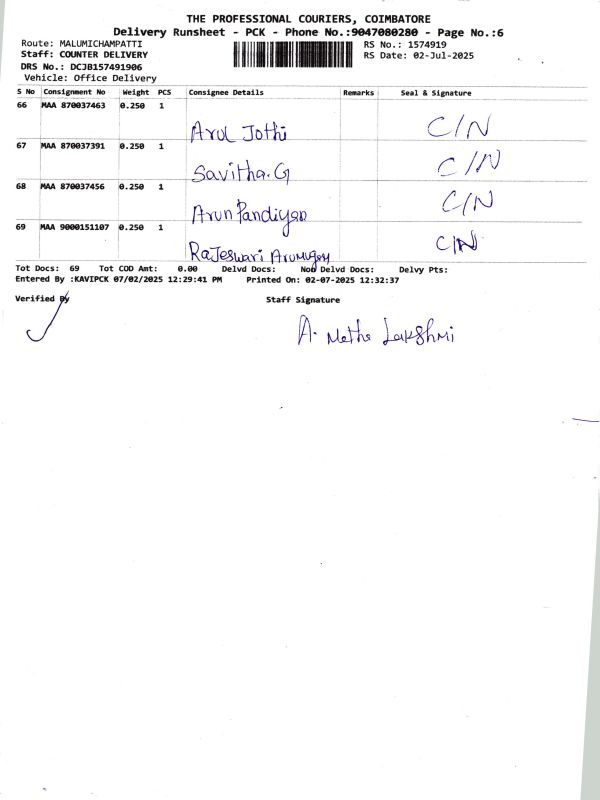 THE PROFESSIONAL COURIERS, COIMBATORE
Delivery Runsheet - PCK - Phone No.:9047080280 - Page No.:6
Route: MALUMICHAMPATTI RS No.: 1574919
Staff: COUNTER DELIVERY RS Date: 02-Jul-2025
DRS No.: DCJB157491906
Vehicle: Office Delivery
S No Consignment No Weight PCS Consignee Details Remarks Seal & Signature
66 MAA 870037463 0.250 1
Arul Jothi C/N
67 MAA 870037391 0.250 1
Savitha.G C/N
68 MAA 870037456 0.250 1
Arun Pandiyan C/N
69 MAA 9000151107 0.250 1
Rajeswari Arumugam C/N
Tot Docs: 69 Tot COD Amt: 0.00 Delvd Docs: Non Delvd Docs: Delvy Pts:
Entered By :KAVIPCK 07/02/2025 12:29:41 PM Printed On: 02-07-2025 12:32:37
Verified By Staff Signature
A. Lakshmi